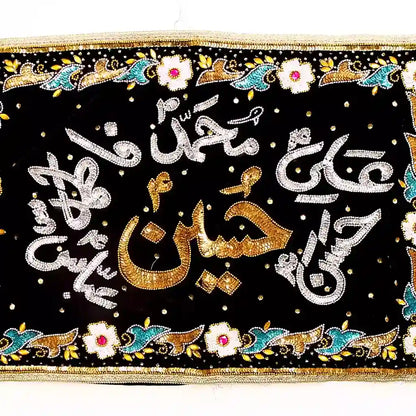 محمد
علی
فاطمه
حسین
حسن
عباس